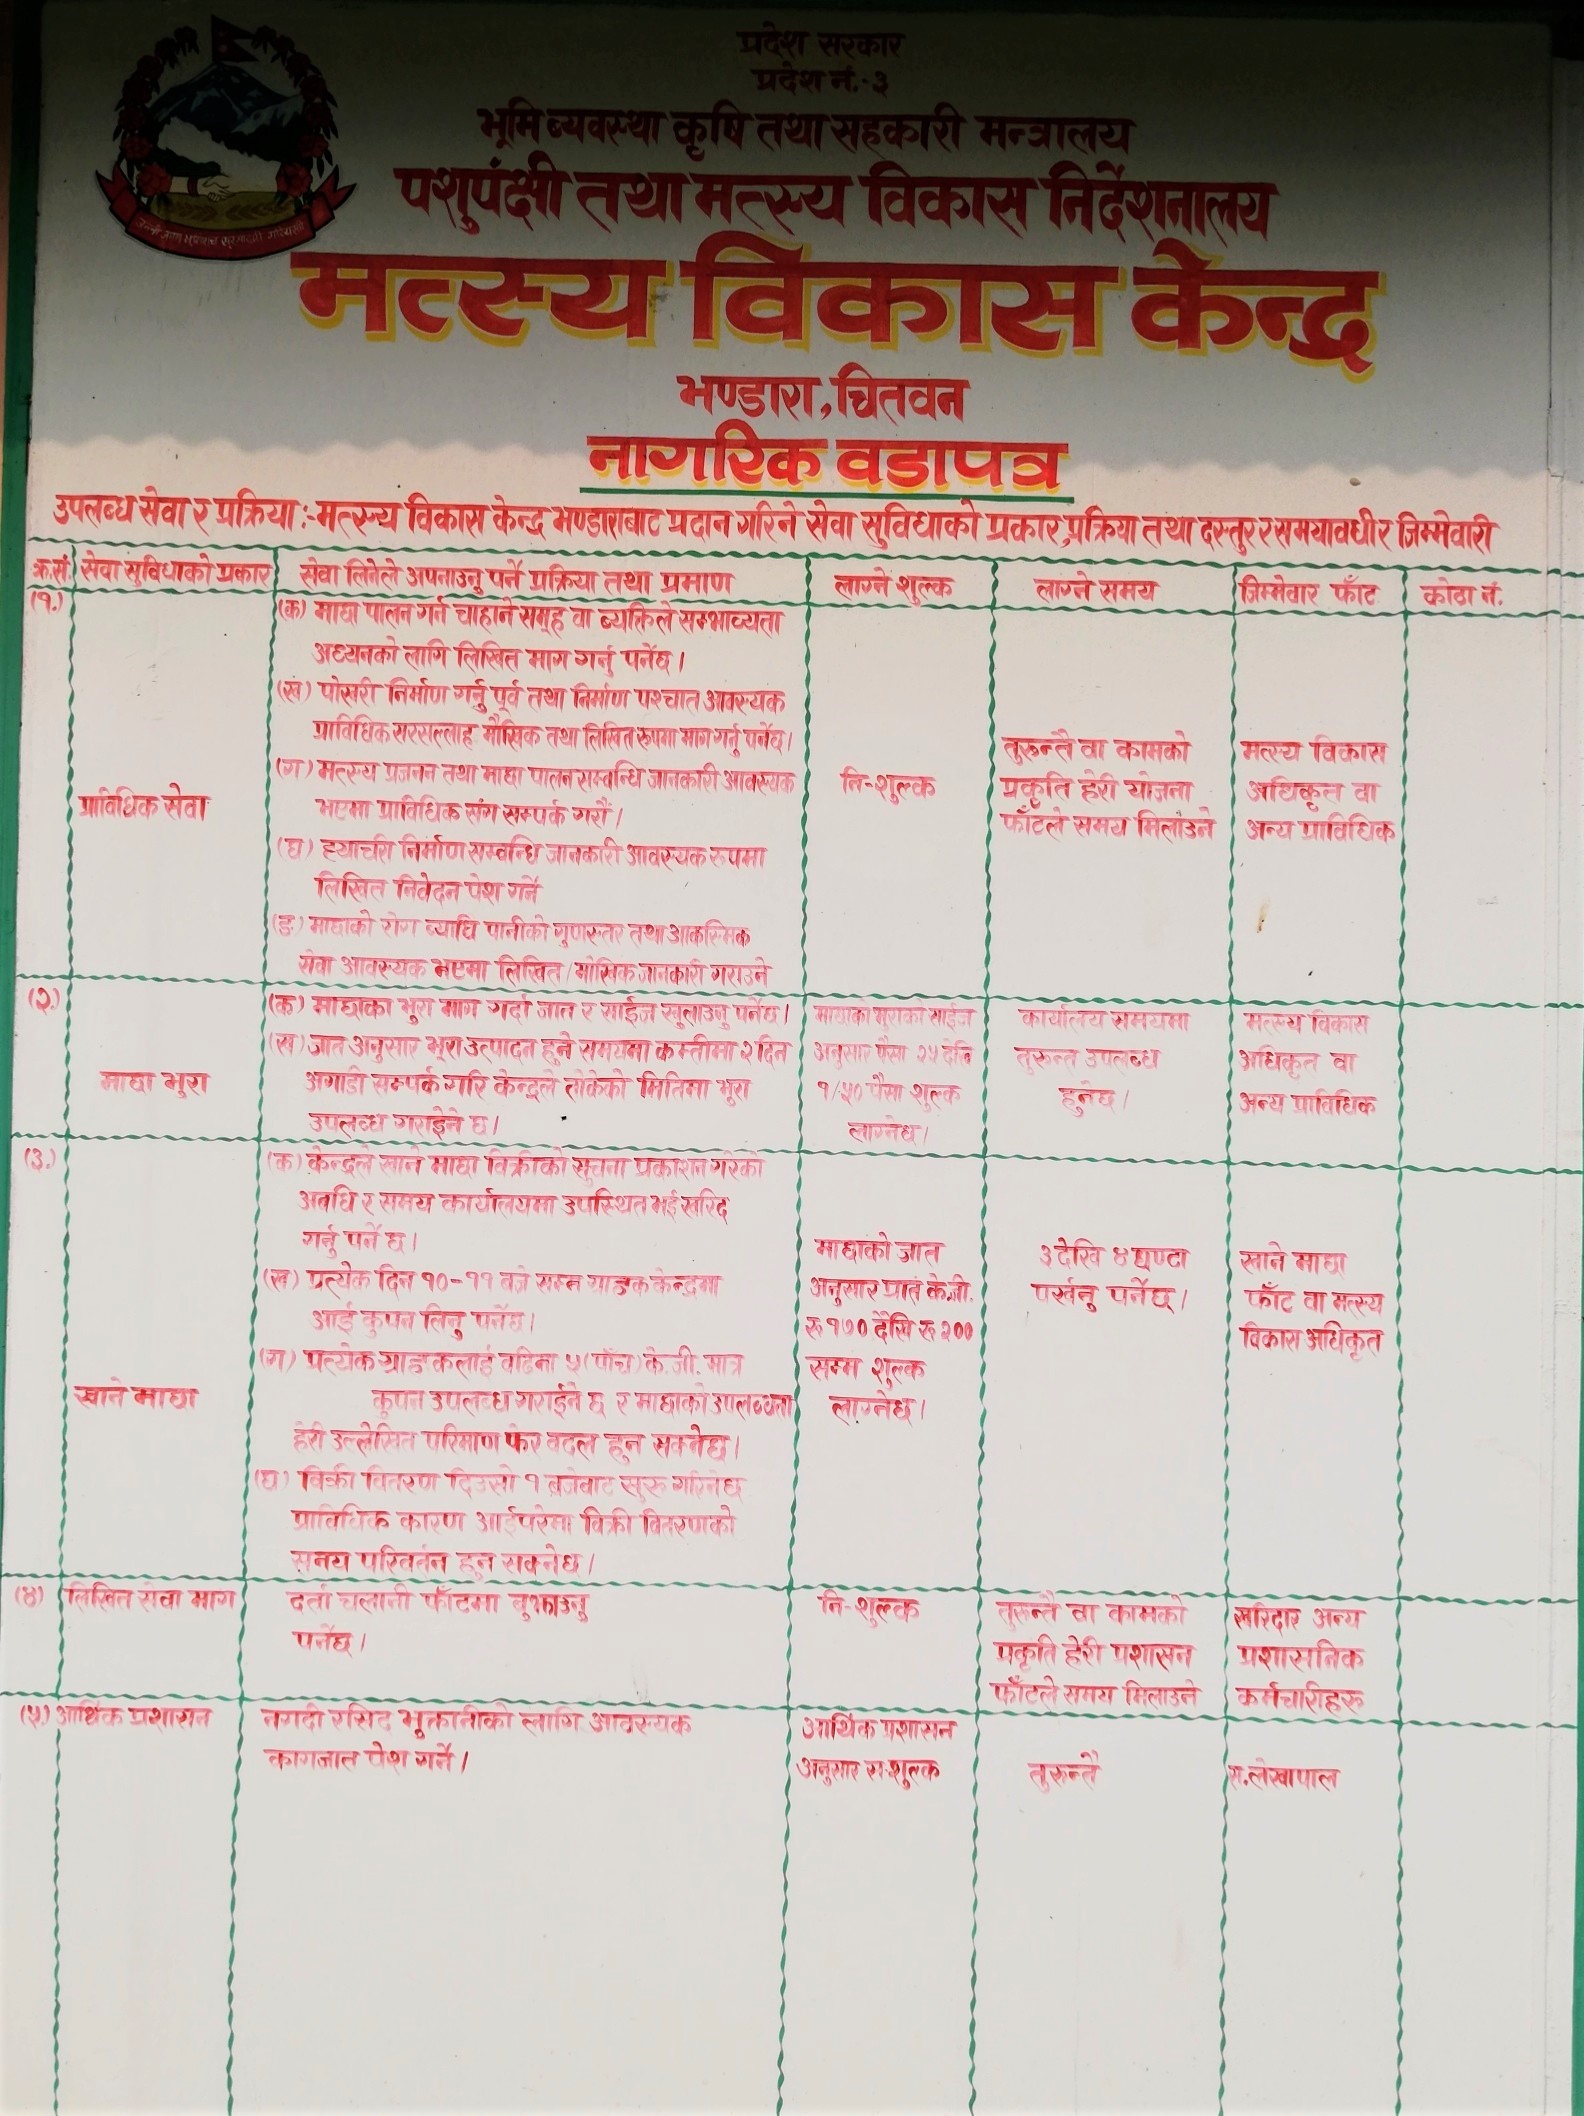 प्रदेश सरकार
प्रदेश नं.-३
भूमि व्यवस्था कृषि तथा सहकारी मन्त्रालय
पशुपंक्षी तथा मत्स्य विकास निर्देशनालय
मत्स्य विकास केन्द्र
भण्डारा, चितवन
नागरिक वडापत्र
उपलब्ध सेवा र प्रक्रिया :- मत्स्य विकास केन्द्र भण्डाराबाट प्रदान गरिने सेवा सुविधाको प्रकार, प्रक्रिया तथा दस्तुर र समयावधी र जिम्मेवारी
क्र.सं. सेवा सुविधाको प्रकार सेवा लिनेले अपनाउनु पर्ने प्रक्रिया तथा प्रमाण लाग्ने शुल्क लाग्ने समय जिम्मेवार फाँट कोठा नं.
(१.)
प्राविधिक सेवा
(क) माछा पालन गर्न चाहाने समूह वा व्यक्तिले सम्भाव्यता
अध्यनको लागि लिखित माग गर्नु पर्नेछ ।
(ख) पोखरी निर्माण गर्नु पूर्व तथा निर्माण पश्चात आवस्यक
प्राविधिक सरसल्लाह मौखिक तथा लिखित रुपमा माग गर्नु पर्नेछ ।
(ग) मत्स्य प्रजनन तथा माछा पालन सम्बन्धि जानकारी आवस्यक
भएमा प्राविधिक संग सम्पर्क गरौं ।
(घ) ह्याचरी निर्माण सम्बन्धि जानकारी आवस्यक रुपमा
लिखित निवेदन पेश गर्ने
(ङ) माछाको रोग ब्याधि पानीको गुणस्तर तथा आकस्मिक
सेवा आवस्यक भएमा लिखित/मौखिक जानकारी गराउने
नि-शुल्क
तुरुन्तै वा कामको
प्रकृति हेरी योजना
फाँटले समय मिलाउने
मत्स्य विकास
अधिकृत वा
अन्य प्राविधिक
(२.)
माछा भुरा
(क) माछाका भुरा माग गर्दा जात र साईज खुलाउनु पर्नेछ ।
(ख) जात अनुसार भुरा उत्पादन हुने समयमा कम्तीमा २ दिन
अगाडी सम्पर्क गरि केन्द्रले तोकेको मितिमा भुरा
उपलब्ध गराईने छ ।
माछाको भुराको साईज
अनुसार पैसा २५ देखि
१/५० पैसा शुल्क
लाग्नेछ ।
कार्यालय समयमा
तुरुन्त उपलब्ध
हुनेछ ।
मत्स्य विकास
अधिकृत वा
अन्य प्राविधिक
(३.)
खाने माछा
(क) केन्द्रले खाने माछा विक्रीको सुचना प्रकाशन गरेको
अवधि र समय कार्यालयमा उपस्थित भई खरिद
गर्नु पर्ने छ ।
(ख) प्रत्येक दिन १०-११ बजे सम्म ग्राहक केन्द्रमा
आई कुपन लिनु पर्नेछ ।
(ग) प्रत्येक ग्राहकलाई वढिमा ५ (पाँच) के.जी. मात्र
कुपन उपलब्ध गराईने छ र माछाको उपलब्धता
हेरी उल्लेखित परिमाण फेर वदल हुन सक्नेछ ।
(घ) विक्री वितरण दिउसो १ बजेबाट सुरु गरिनेछ
प्राविधिक कारण आईपरेमा विक्री वितरणको
समय परिवर्तन हुन सक्नेछ ।
माछाको जात
अनुसार प्रति के.जी.
रु १७० देखि रु २००
सम्म शुल्क
लाग्नेछ ।
३ देखि ४ घण्टा
पर्खनु पर्नेछ ।
खाने माछा
फाँट वा मत्स्य
विकास अधिकृत
(४)
लिखित सेवा माग
दर्ता चलानी फाँटमा बुझाउनु
पर्नेछ ।
नि-शुल्क
तुरुन्तै वा कामको
प्रकृति हेरी प्रशासन
फाँटले समय मिलाउने
खरिदार अन्य
प्रशासनिक
कर्मचारीहरु
(५.) आर्थिक प्रशासन
नगदी रसिद भुक्तानीको लागि आवस्यक
कागजात पेश गर्ने ।
आर्थिक प्रशासन
अनुसार स-शुल्क
तुरुन्तै
स.लेखापाल